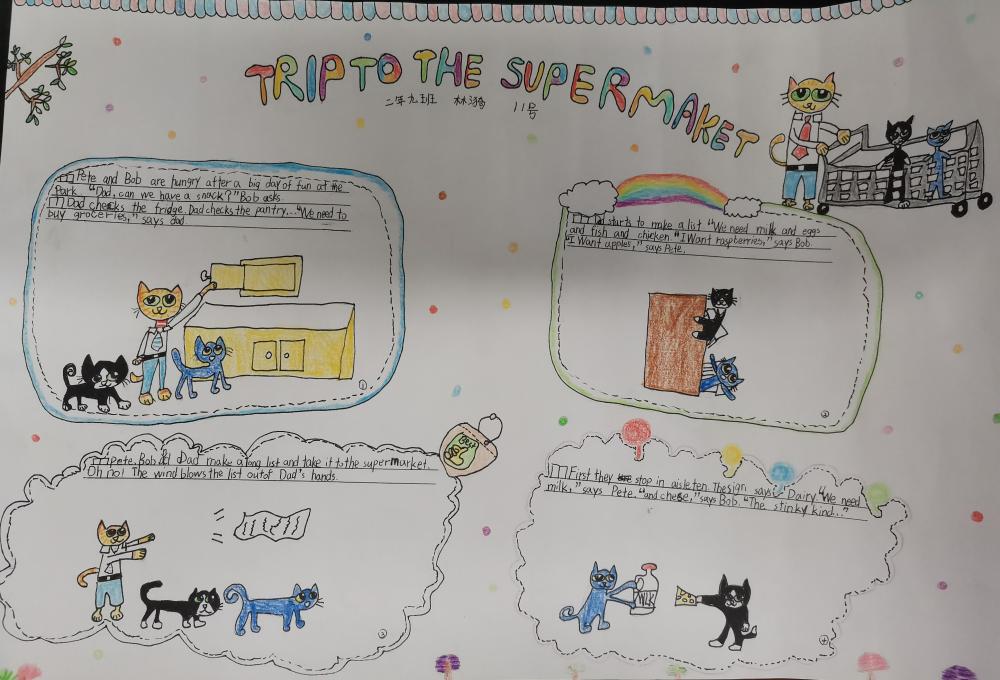 TRIP TO THE SUPERMAKET
二年九班 林鸿 11号
Pete and Bob are hungry after a big day of fun at the
Park. "Dad, can we have a snack?" Bob asks.
Dad checks the fridge. Dad checks the pantry... "We need to
buy groceries," says dad.
1
Dad starts to make a list "We need milk and eggs
and fish and chicken "I Want raspberries," says Bob.
"I Want apples," says Pete.
2
Pete, Bob & Dad make a long list and take it to the supermarket.
Oh no! The wind blows the list out of Dad's hands.
3
First they stop in aisle ten. The sign says: Dairy "We need
milk," says Pete, "and cheese," says Bob. "The stinky kind..."
MILK
4